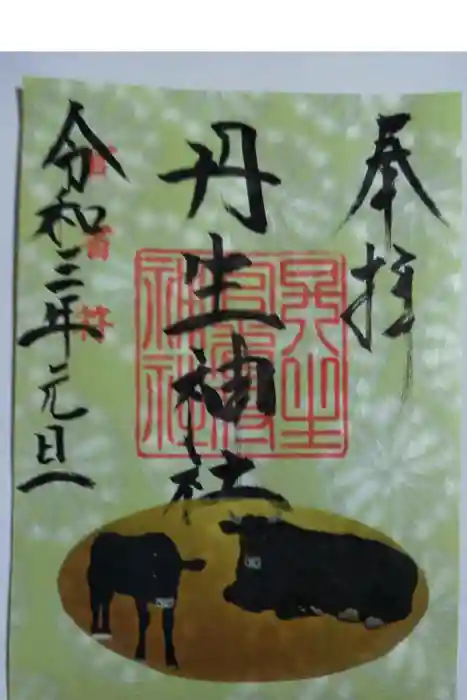 奉拝
丹生神社
令和三年元旦